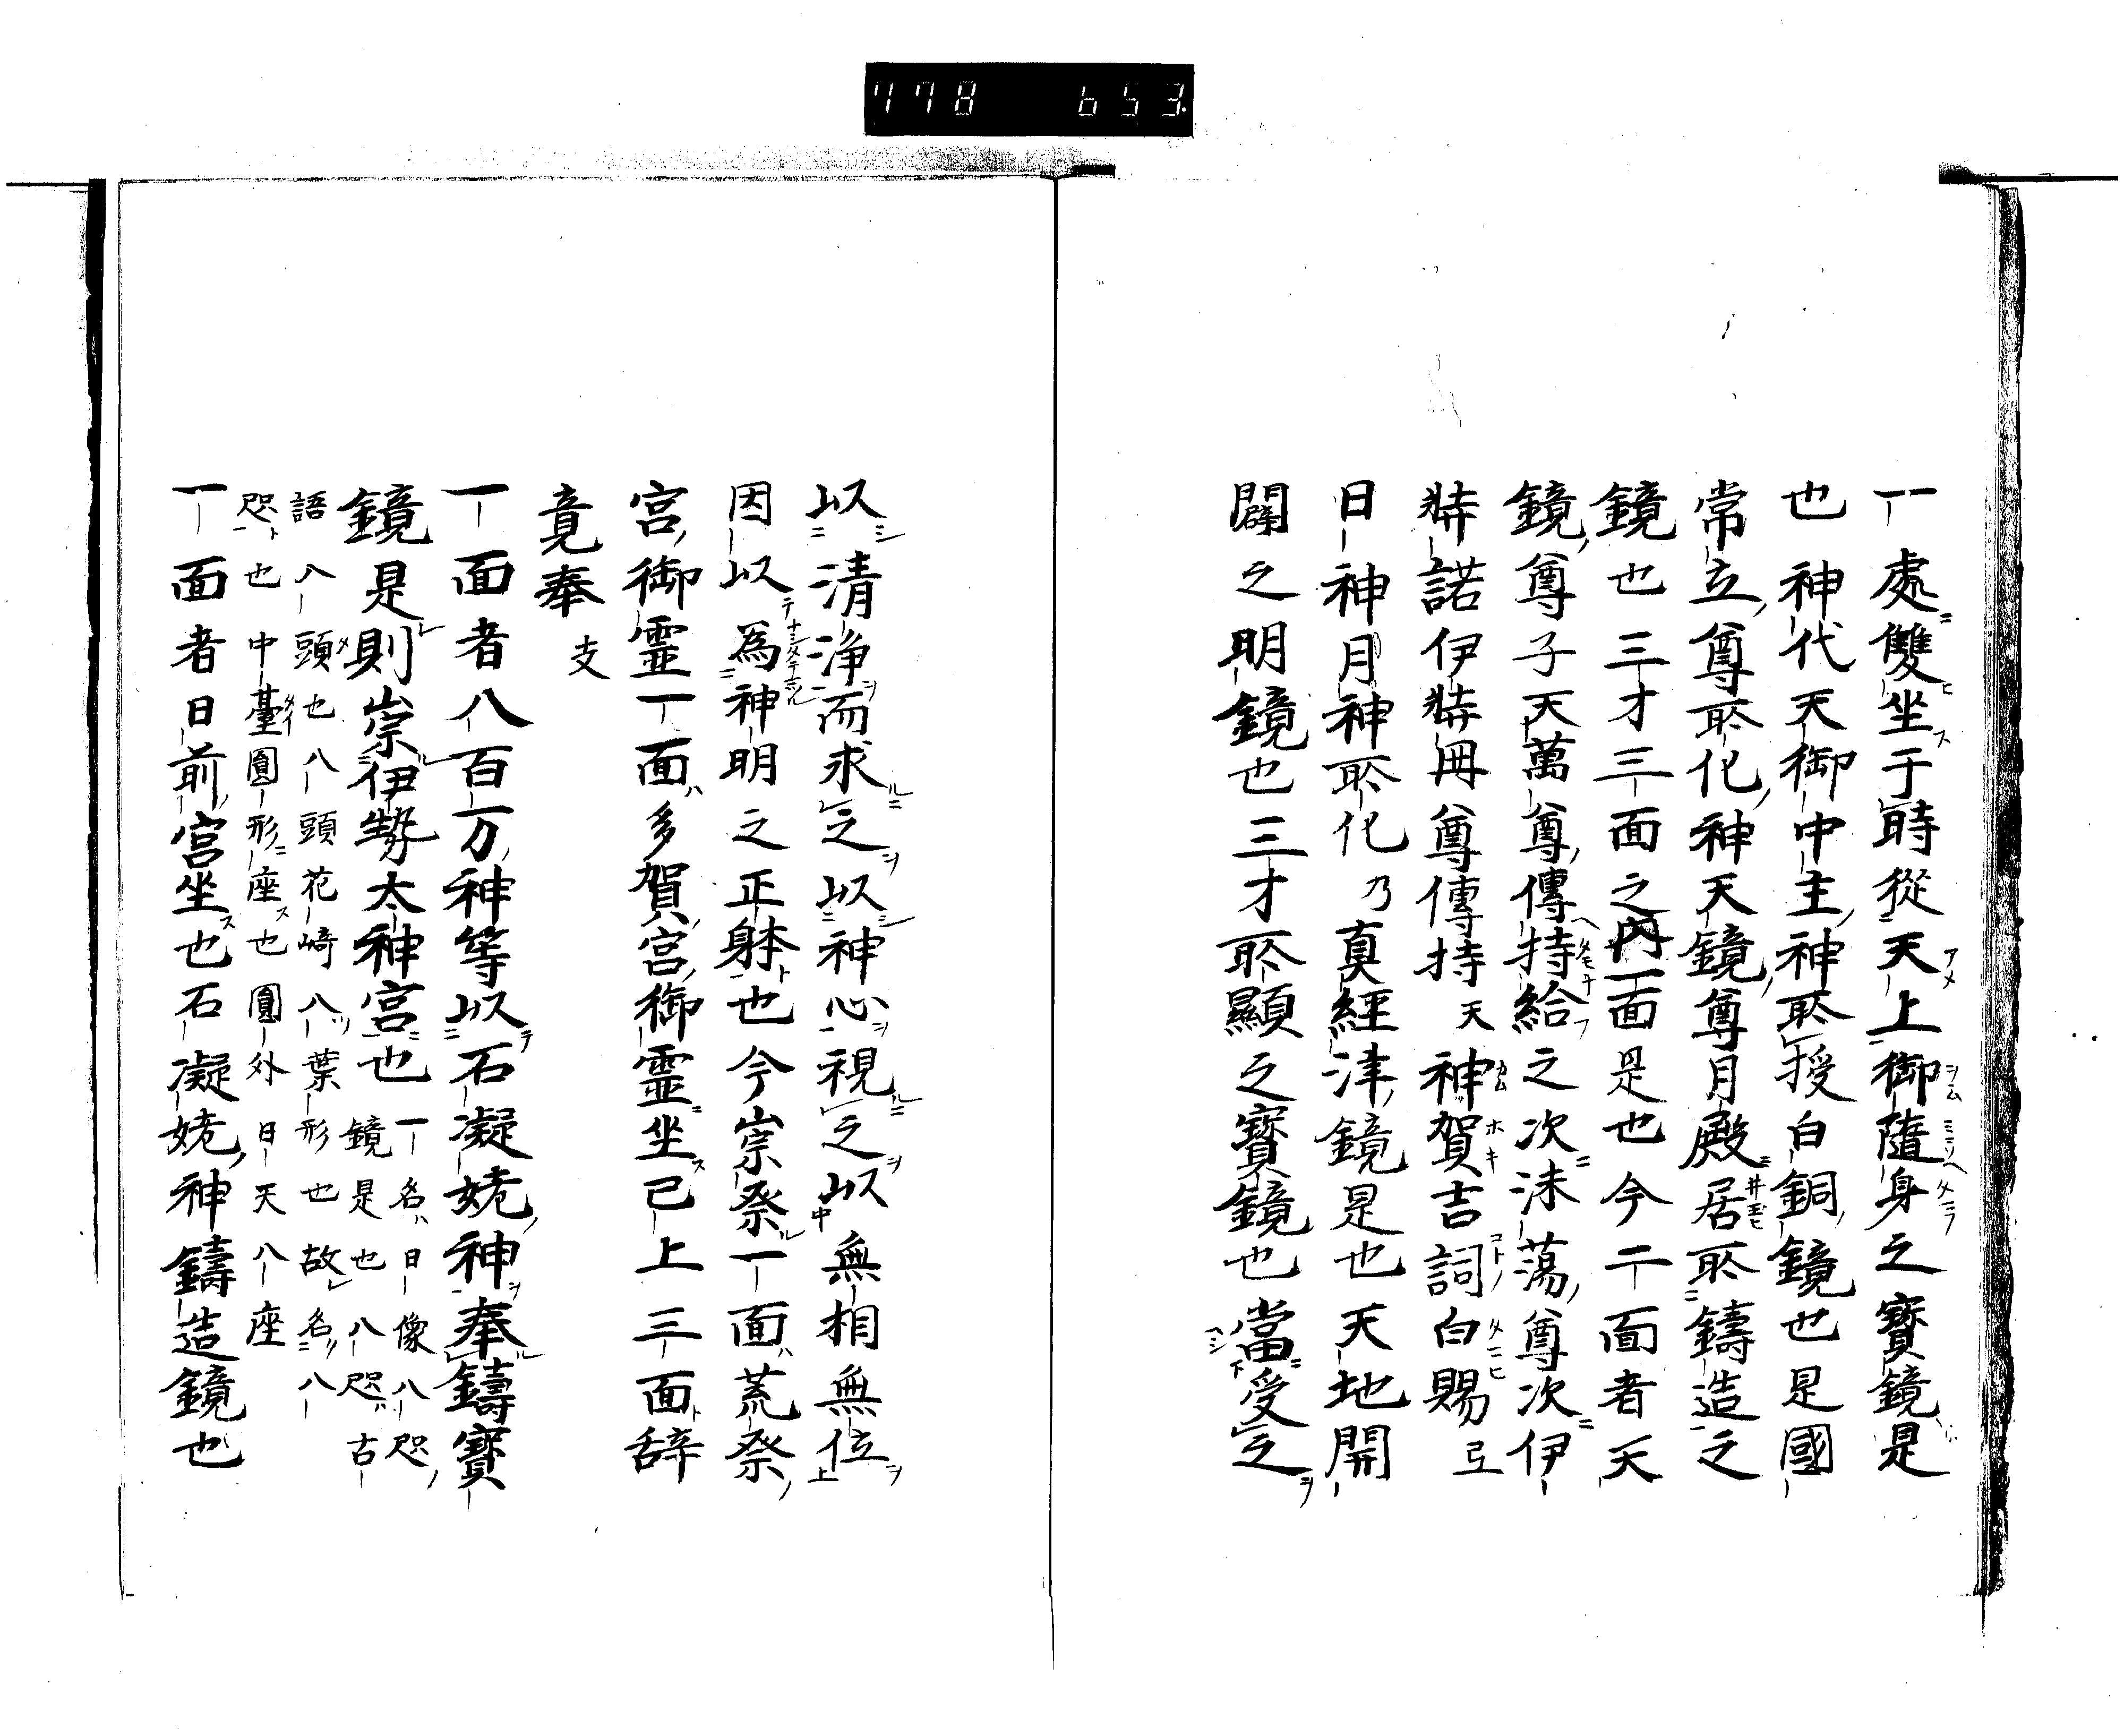 778 653
一處雙坐于時從天上御隨身之寶鏡是
也神代天御中主神所授白銅鏡也是國
常立尊所化神天鏡尊月殿居所鑄造之
鏡也三才三面之內一面是也今二面者天
鏡尊子天萬尊傳持給之次沫蕩尊次伊
弉諾伊弉冊尊傳持天神賀吉詞白賜弖
日神月神所化乃真經津鏡是也天地開
闢之明鏡也三才所顯之寶鏡也當受之
以清浄而求之以神心視之以無相無位
因以為神明之正躰也今崇祭一面荒祭
宮御霊一面多賀宮御霊坐已上三面辞
竟奉支
一面者八百万神等以石凝姥神奉鑄寶
鏡是則崇伊勢太神宮也一名日像八咫
鏡是也八咫古
語八頭也八頭花崎八葉形也故名八
咫也中臺圓形座也圓外日天八座
一面者日前宮坐也石凝姥神鑄造鏡也